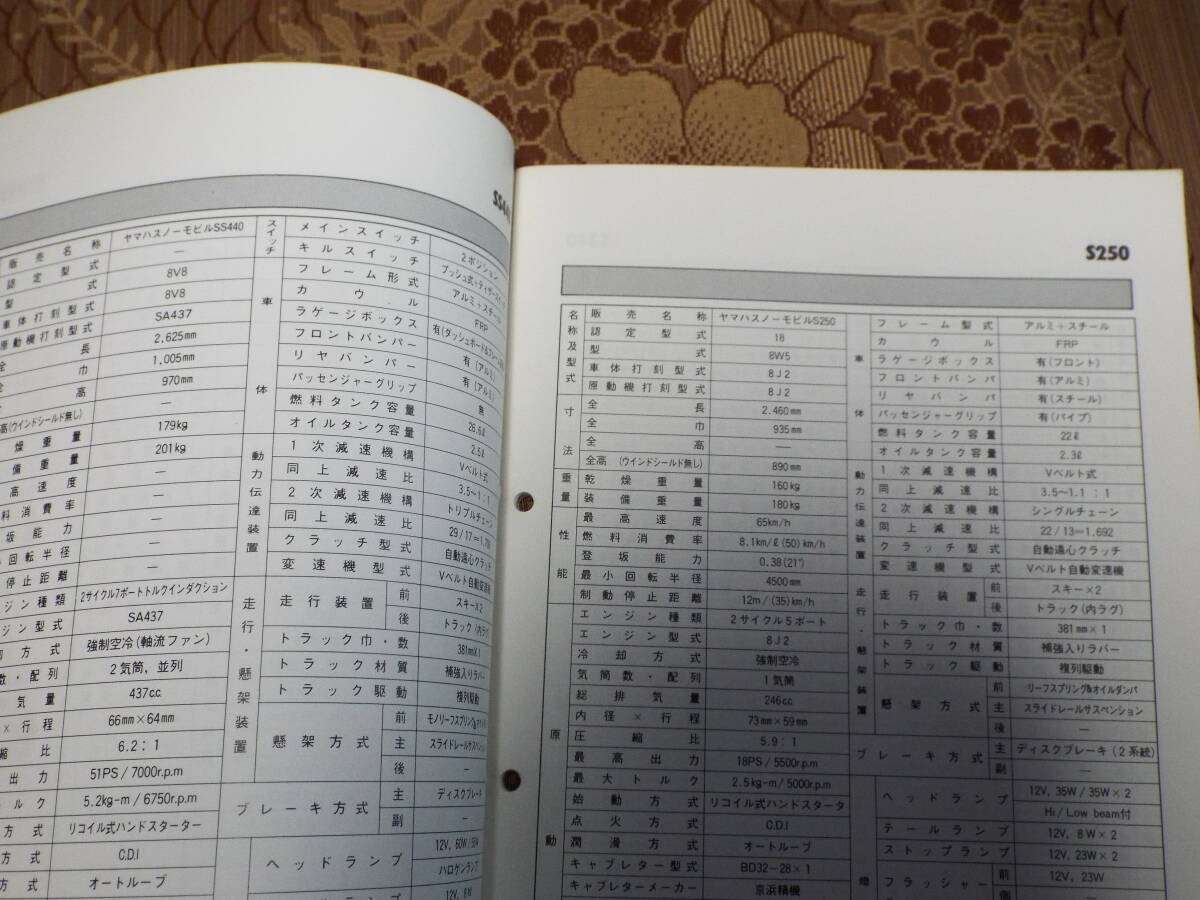 SS44
販売名称 ヤマハスノーモビルSS440
認定型式 —
型式 8V8
車体打刻型式 8V8
原動機打刻型式 SA437
長 2,625mm
巾 1,005mm
高 970mm
高(ウインドシールド無し) —
燥重量 179kg
備重量 201kg
高速度 —
料消費率 —
坂能力 —
回転半径 —
停止距離 —
ジン種類 2サイクル7ポートトルクインダクション
ジン型式 SA437
方式 強制空冷(軸流ファン)
数・配列 2気筒,並列
気量 437cc
×行程 66mm×64mm
縮比 6.2:1
出力 51PS/7000r.p.m
ルク 5.2kg-m/6750r.p.m
方式 リコイル式ハンドスターター
方式 C.D.I
方式 オートループ
スイッチ
メインスイッチ 2ポジション
キルスイッチ
車体
フレーム形式 アルミ+スチール
カウル FRP
ラゲージボックス
フロントバンパー 有(アルミ)
リヤバンパー 有(アルミ)
パッセンジャーグリップ 無
燃料タンク容量 26.6ℓ
オイルタンク容量 2.5ℓ
動力伝達装置
1次減速機構 Vベルト式
同上減速比 3.5~1:1
2次減速機構 トリプルチェーン
同上減速比
クラッチ型式 自動遠心クラッチ
変速機型式 Vベルト自動変速機
走行・懸架装置
走行装置 前 スキー×2
後 トラック(内ラグ)
トラック巾・数 381m×1
トラック材質 補強入りラバー
トラック駆動 複列駆動
懸架方式 前
主 スライドレールサスペンション
後 —
ブレーキ方式 主 ディスクブレーキ
副 —
ヘッドランプ
ハロゲンランプ
S250
名称及型式
販売名称 ヤマハスノーモビルS250
認定型式 18
型式 8W5
車体打刻型式 8J2
原動機打刻型式 8J2
寸法
全長 2.460mm
全巾 935mm
全高 —
全高(ウインドシールド無し) 890mm
重量
乾燥重量 160kg
装備重量 180kg
性能
最高速度 65km/h
燃料消費率 8.1km/ℓ(50)km/h
登坂能力 0.38(21°)
最小回転半径 4500mm
制動停止距離 12m/(35)km/h
原動
エンジン種類 2サイクル5ポート
エンジン型式 8J2
冷却方式 強制空冷
気筒数・配列 1気筒
総排気量 246cc
内径×行程 73mm×59mm
圧縮比 5.9:1
最高出力 18PS/5500r.p.m
最大トルク 2.5kg-m/5000r.p.m
始動方式 リコイル式ハンドスタータ
点火方式 C.D.I
潤滑方式 オートループ
キャブレター型式 BD32-28×1
キャブレターメーカー 京浜精機
車体
フレーム型式 アルミ+スチール
カウル FRP
ラゲージボックス 有(フロント)
フロントバンパ 有(アルミ)
リヤバンパ 有(スチール)
パッセンジャーグリップ 有(パイプ)
燃料タンク容量 22ℓ
オイルタンク容量 2.3ℓ
動力伝達装置
1次減速機構 Vベルト式
同上減速比 3.5~1.1:1
2次減速機構 シングルチェーン
同上減速比 22/13=1.692
クラッチ型式 自動遠心クラッチ
変速機型式 Vベルト自動変速機
走行・懸架装置
走行装置 前 スキー×2
後 トラック(内ラグ)
トラック巾・数 381mm×1
トラック材質 補強入りラバー
トラック駆動 複列駆動
懸架方式 前 リーフスプリング&オイルダンパ
主 スライドレールサスペンション
後 —
ブレーキ方式 主 ディスクブレーキ(2系統)
副 —
ヘッドランプ 12V,35W/35W×2
Hi/Low beam付
テールランプ 12V,8W×2
ストップランプ 12V,23W×2
フラッシャー 前 12V,23W
側